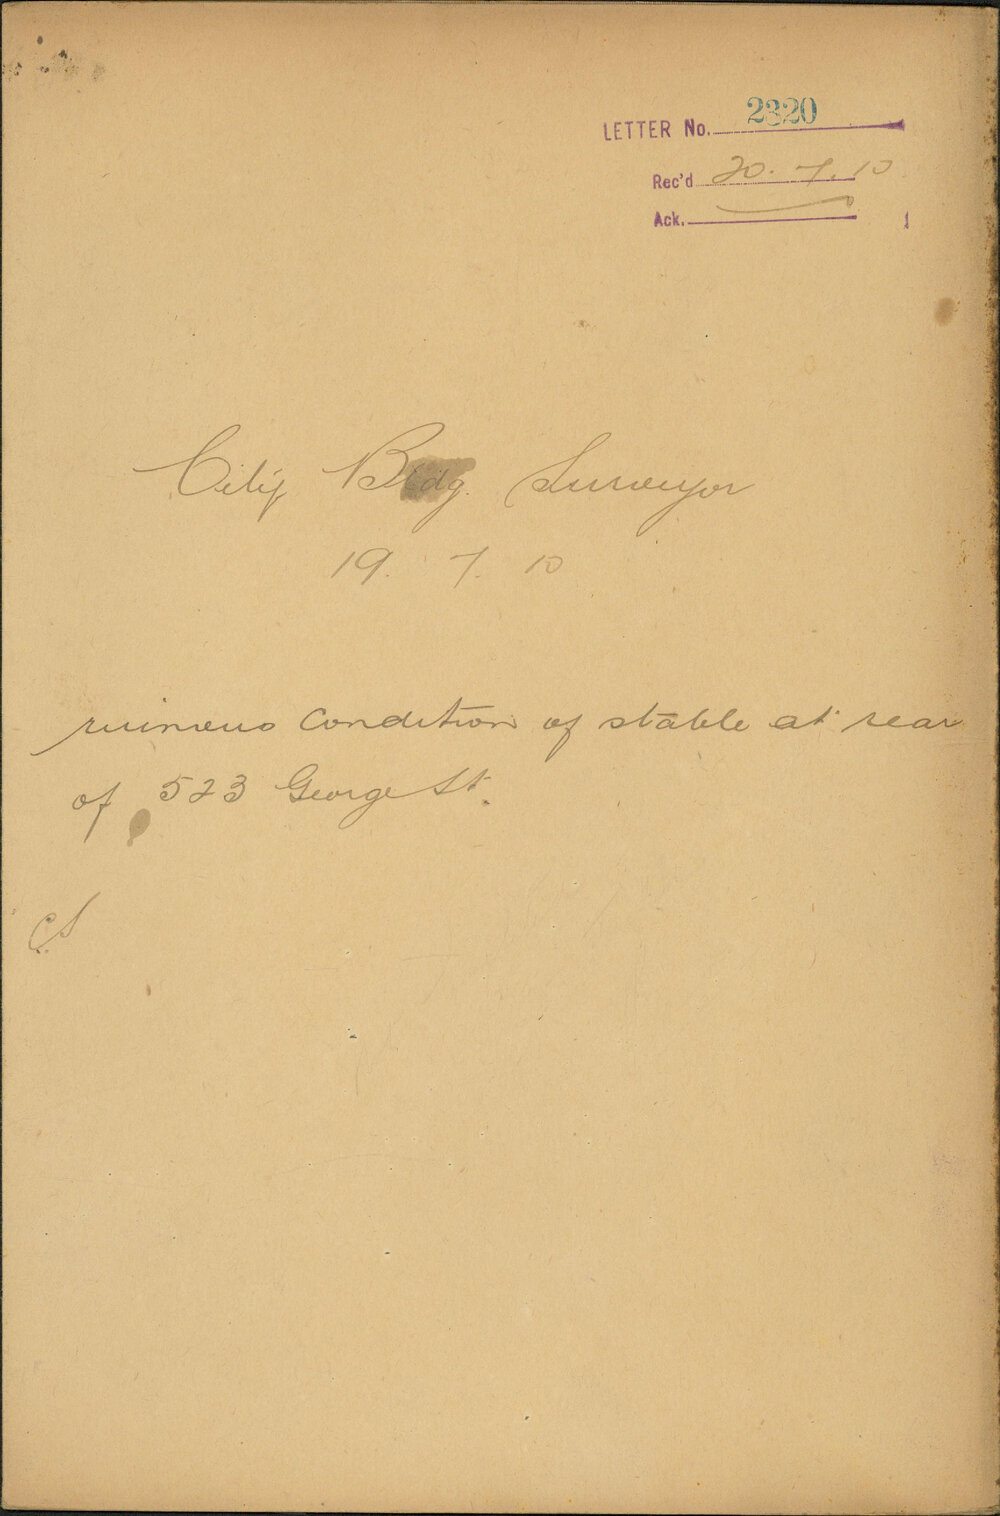 LETTER No. 2320
Rec'd 20. 7. 10
Ack.
City Bldg. Surveyor
19. 7. 10
ruinous condition of stable at rear
of 523 George St.
CS